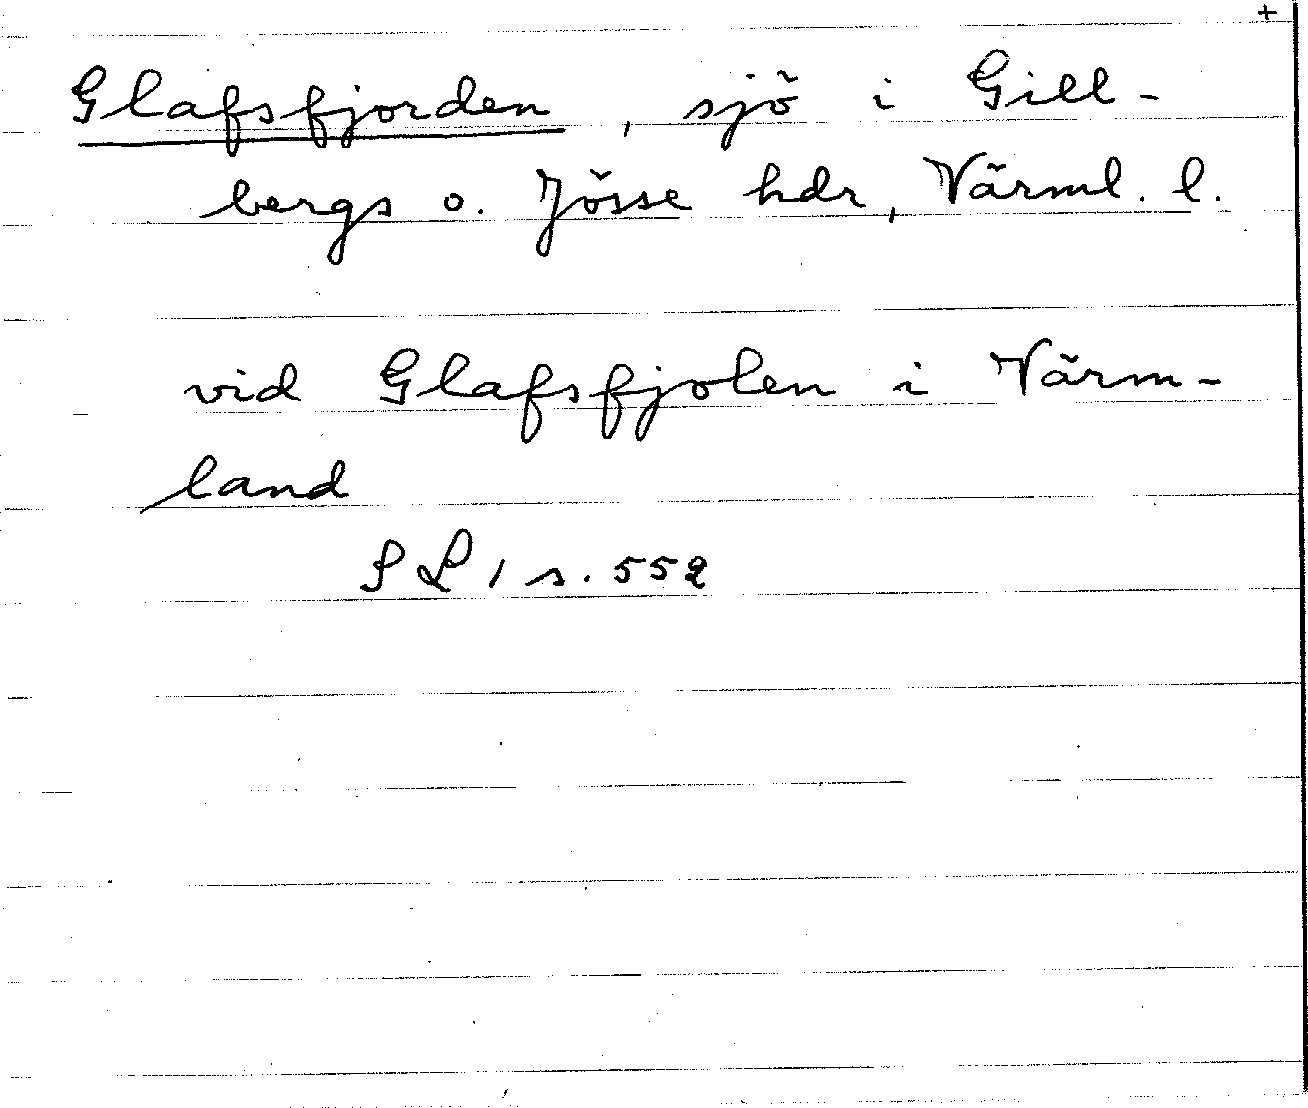 +
Glafsfjorden, sjö i Gill-
bergs o. Jösse hdr, Värml. l.
vid Glafsfjolen i Värm-
land
SL 1 s. 552